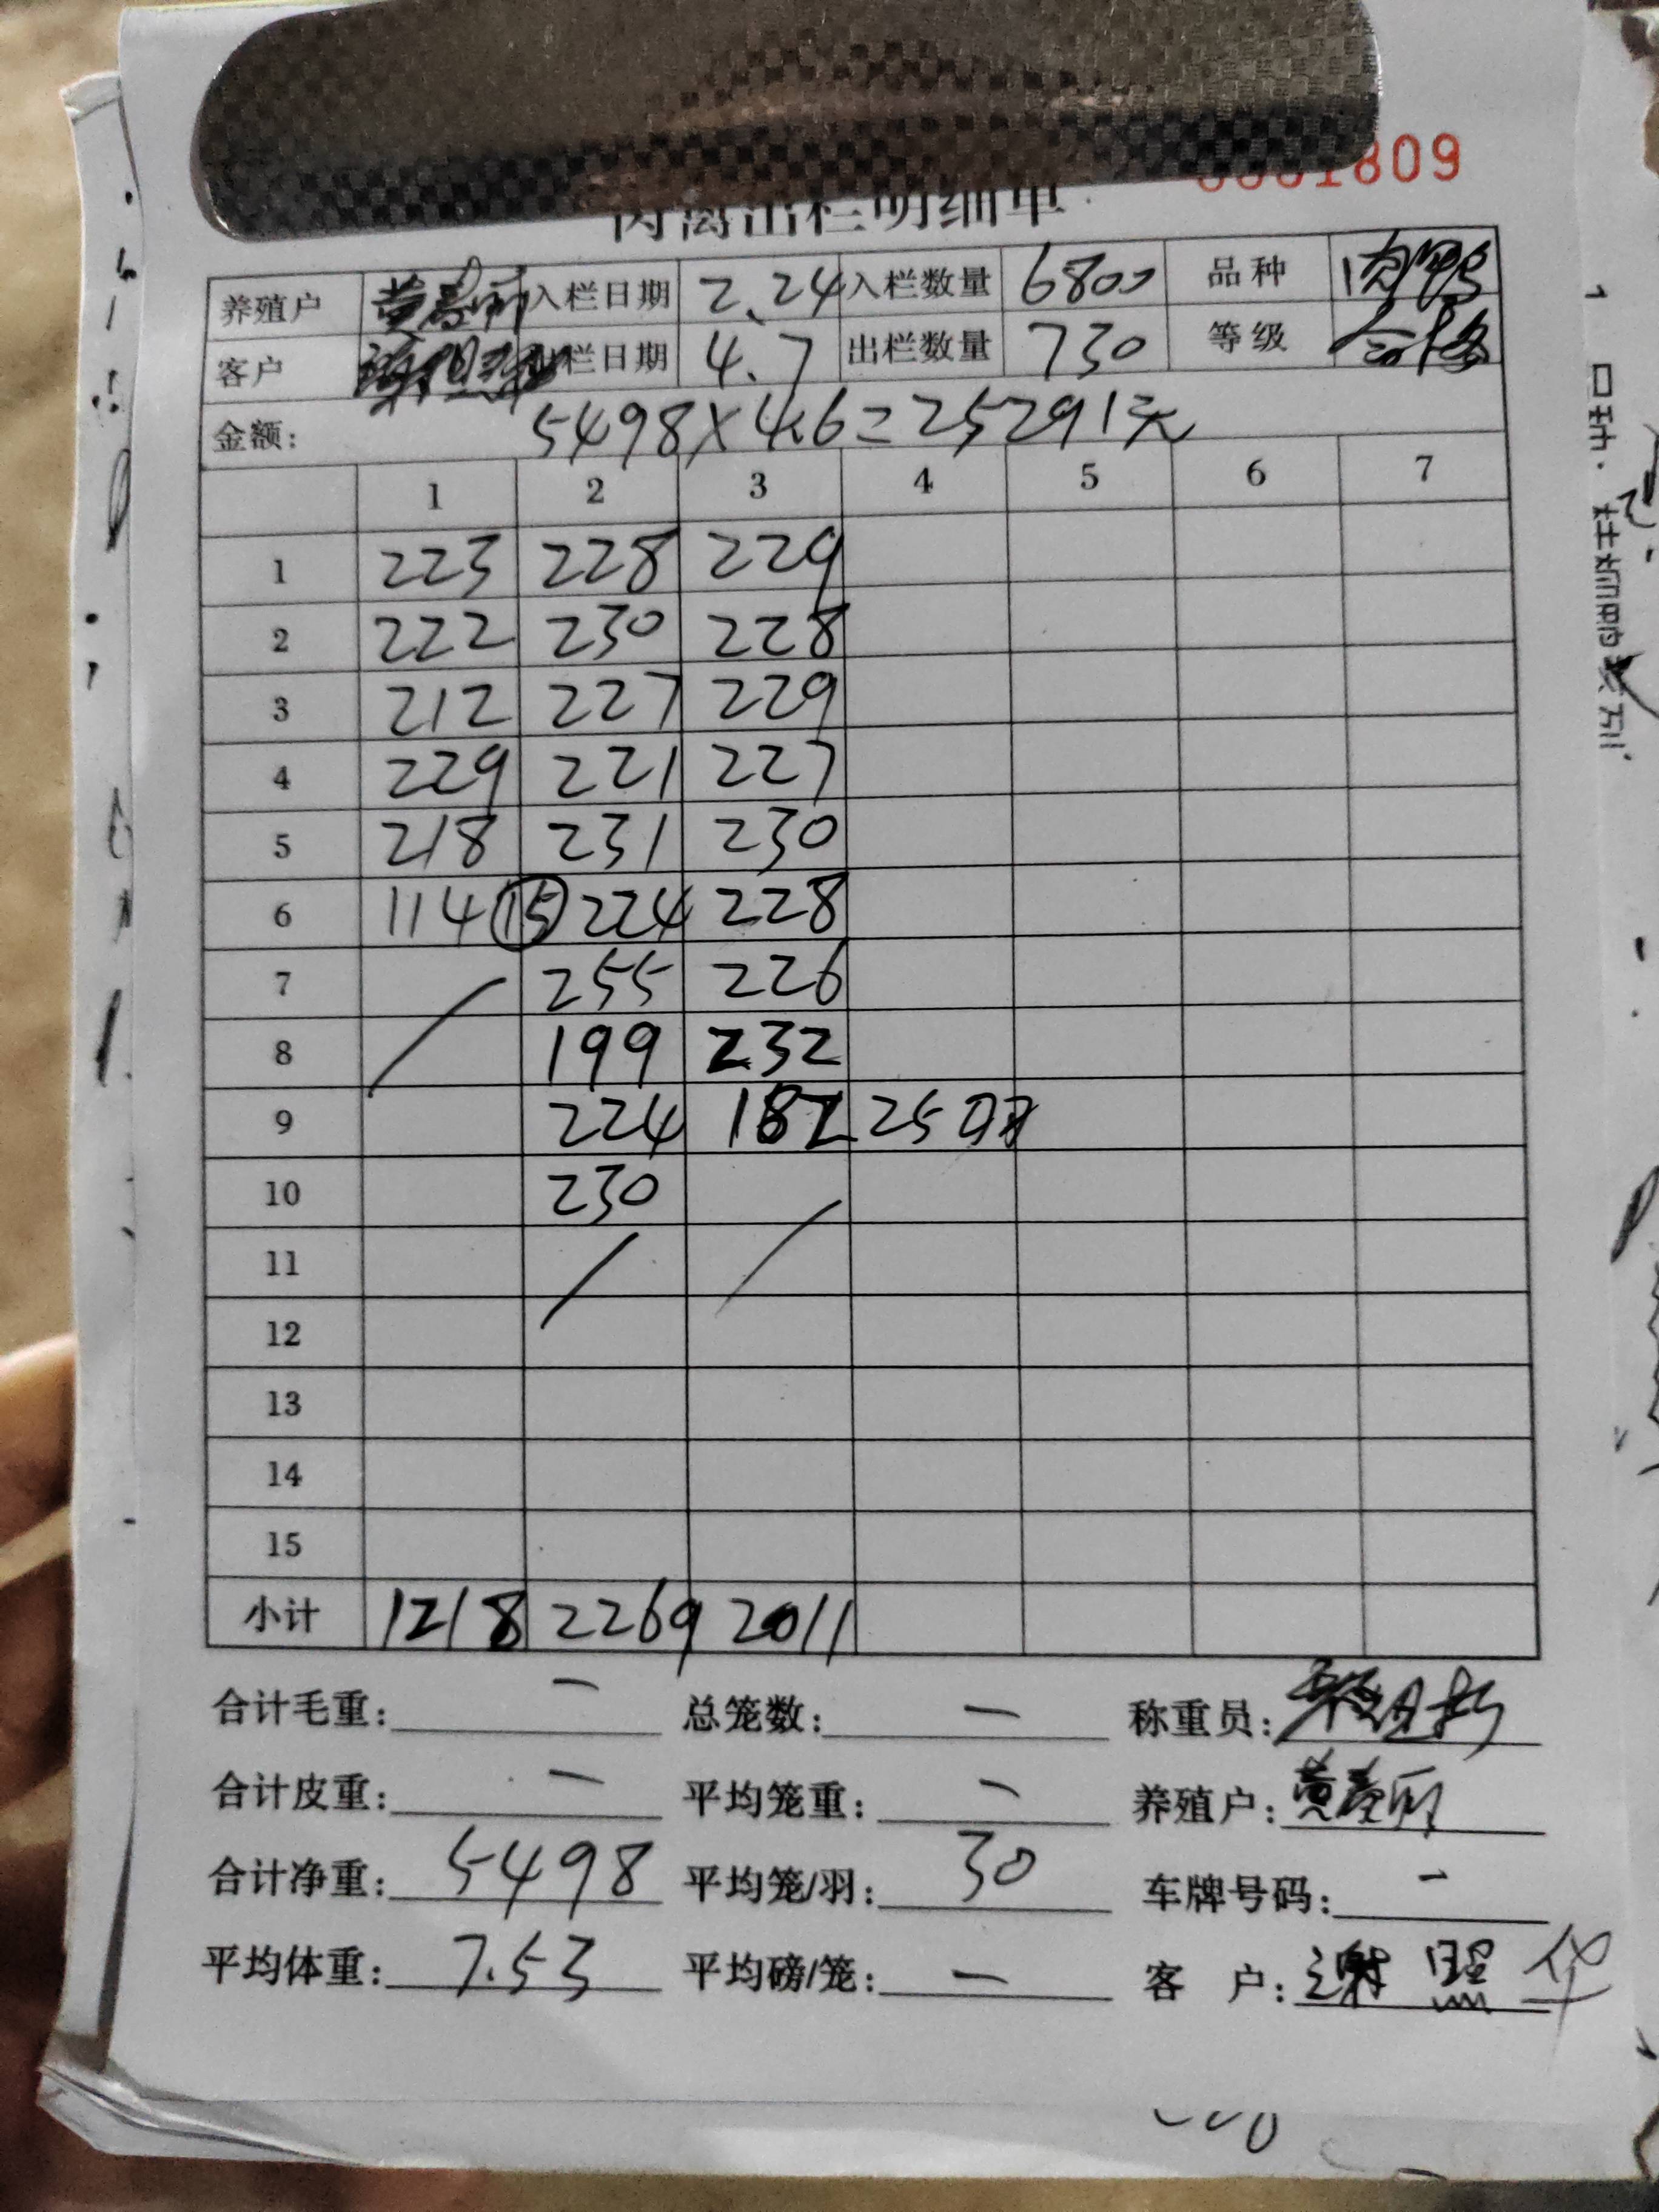 1809
肉禽出栏明细单
养殖户 入栏日期 2.24 入栏数量 6800 品种 肉鸭
客户 出栏日期 4.7 出栏数量 730 等级 合格
金额: 5498×4.6=25291元
1 2 3 4 5 6 7
1 223 228 229
2 222 230 228
3 212 227 229
4 229 221 227
5 218 231 230
6 114 15 224 228
7 255 226
8 199 232
9 224 182 25
10 230
11
12
13
14
15
小计 1218 2269 2011
合计毛重: 一 总笼数: 一 称重员:
合计皮重: 一 平均笼重: 一 养殖户:
合计净重: 5498 平均笼/羽: 30 车牌号码: 一
平均体重: 7.53 平均磅/笼: 一 客 户: 谢照华